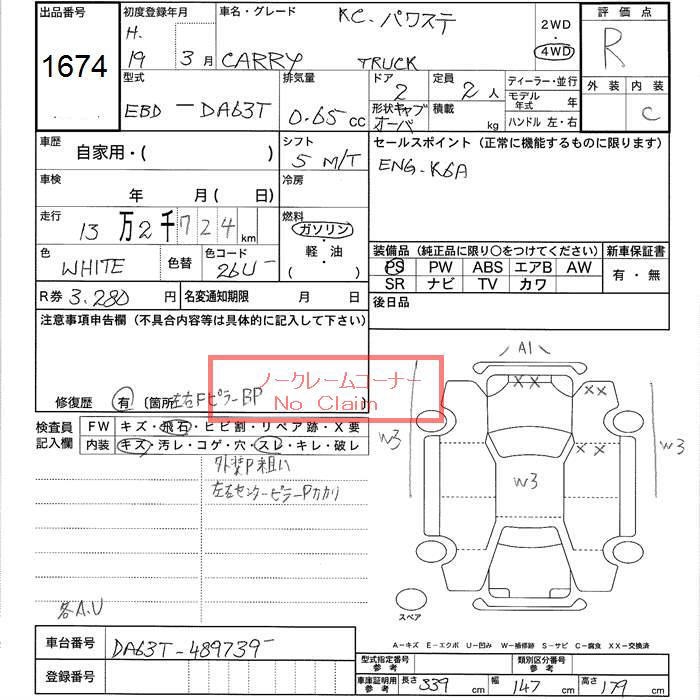 出品番号
1674
初度登録年月
H.
19 3 月
車名・グレード
KC. パワステ
CARRY TRUCK
2WD
・
4WD
評 価 点
R
外 装 内 装
C
型式
EBD - DA63T
排気量
0.65 cc
ドア
2
形状 キャブオーバ
定員
2 人
積載
kg
ディーラー・並行
モデル年式 年
ハンドル 左・右
車歴
自家用・( )
シフト
5 M/T
セールスポイント (正常に機能するものに限ります)
ENG-K6A
車検
年 月 ( 日)
冷房
走行
13 万 2 千 7 2 4 km
燃料
ガソリン
・
軽・油
( )
色
WHITE
色替
色コード
26U
装備品 (純正品に限り〇をつけてください)
PS PW ABS エアB AW
SR ナビ TV カワ
新車保証書
有・無
R券 3.280 円
名変通知期限 月 日
後日品
注意事項申告欄 (不具合内容等は具体的に記入して下さい)
ノークレームコーナー
No Claim
修復歴 有 〔箇所 左右FピラーBP
検査員記入欄
FW キズ・飛石・ヒビ割・リペア跡・X要
内装 キズ・汚レ・コゲ・穴・スレ・キレ・破レ
外装P粗い
左右センターピラーPカカリ
各A.U
A1
XX
XX
XX
W3
W3
W3
スペア
A-キズ E-エクボ U-凹み W-補修跡 S-サビ C-腐食 XX-交換済
車台番号 DA63T-489739
登録番号
型式指定番号参考
類別区分番号参考
車庫証明用参考 長さ 339 幅 147 高さ 179 cm